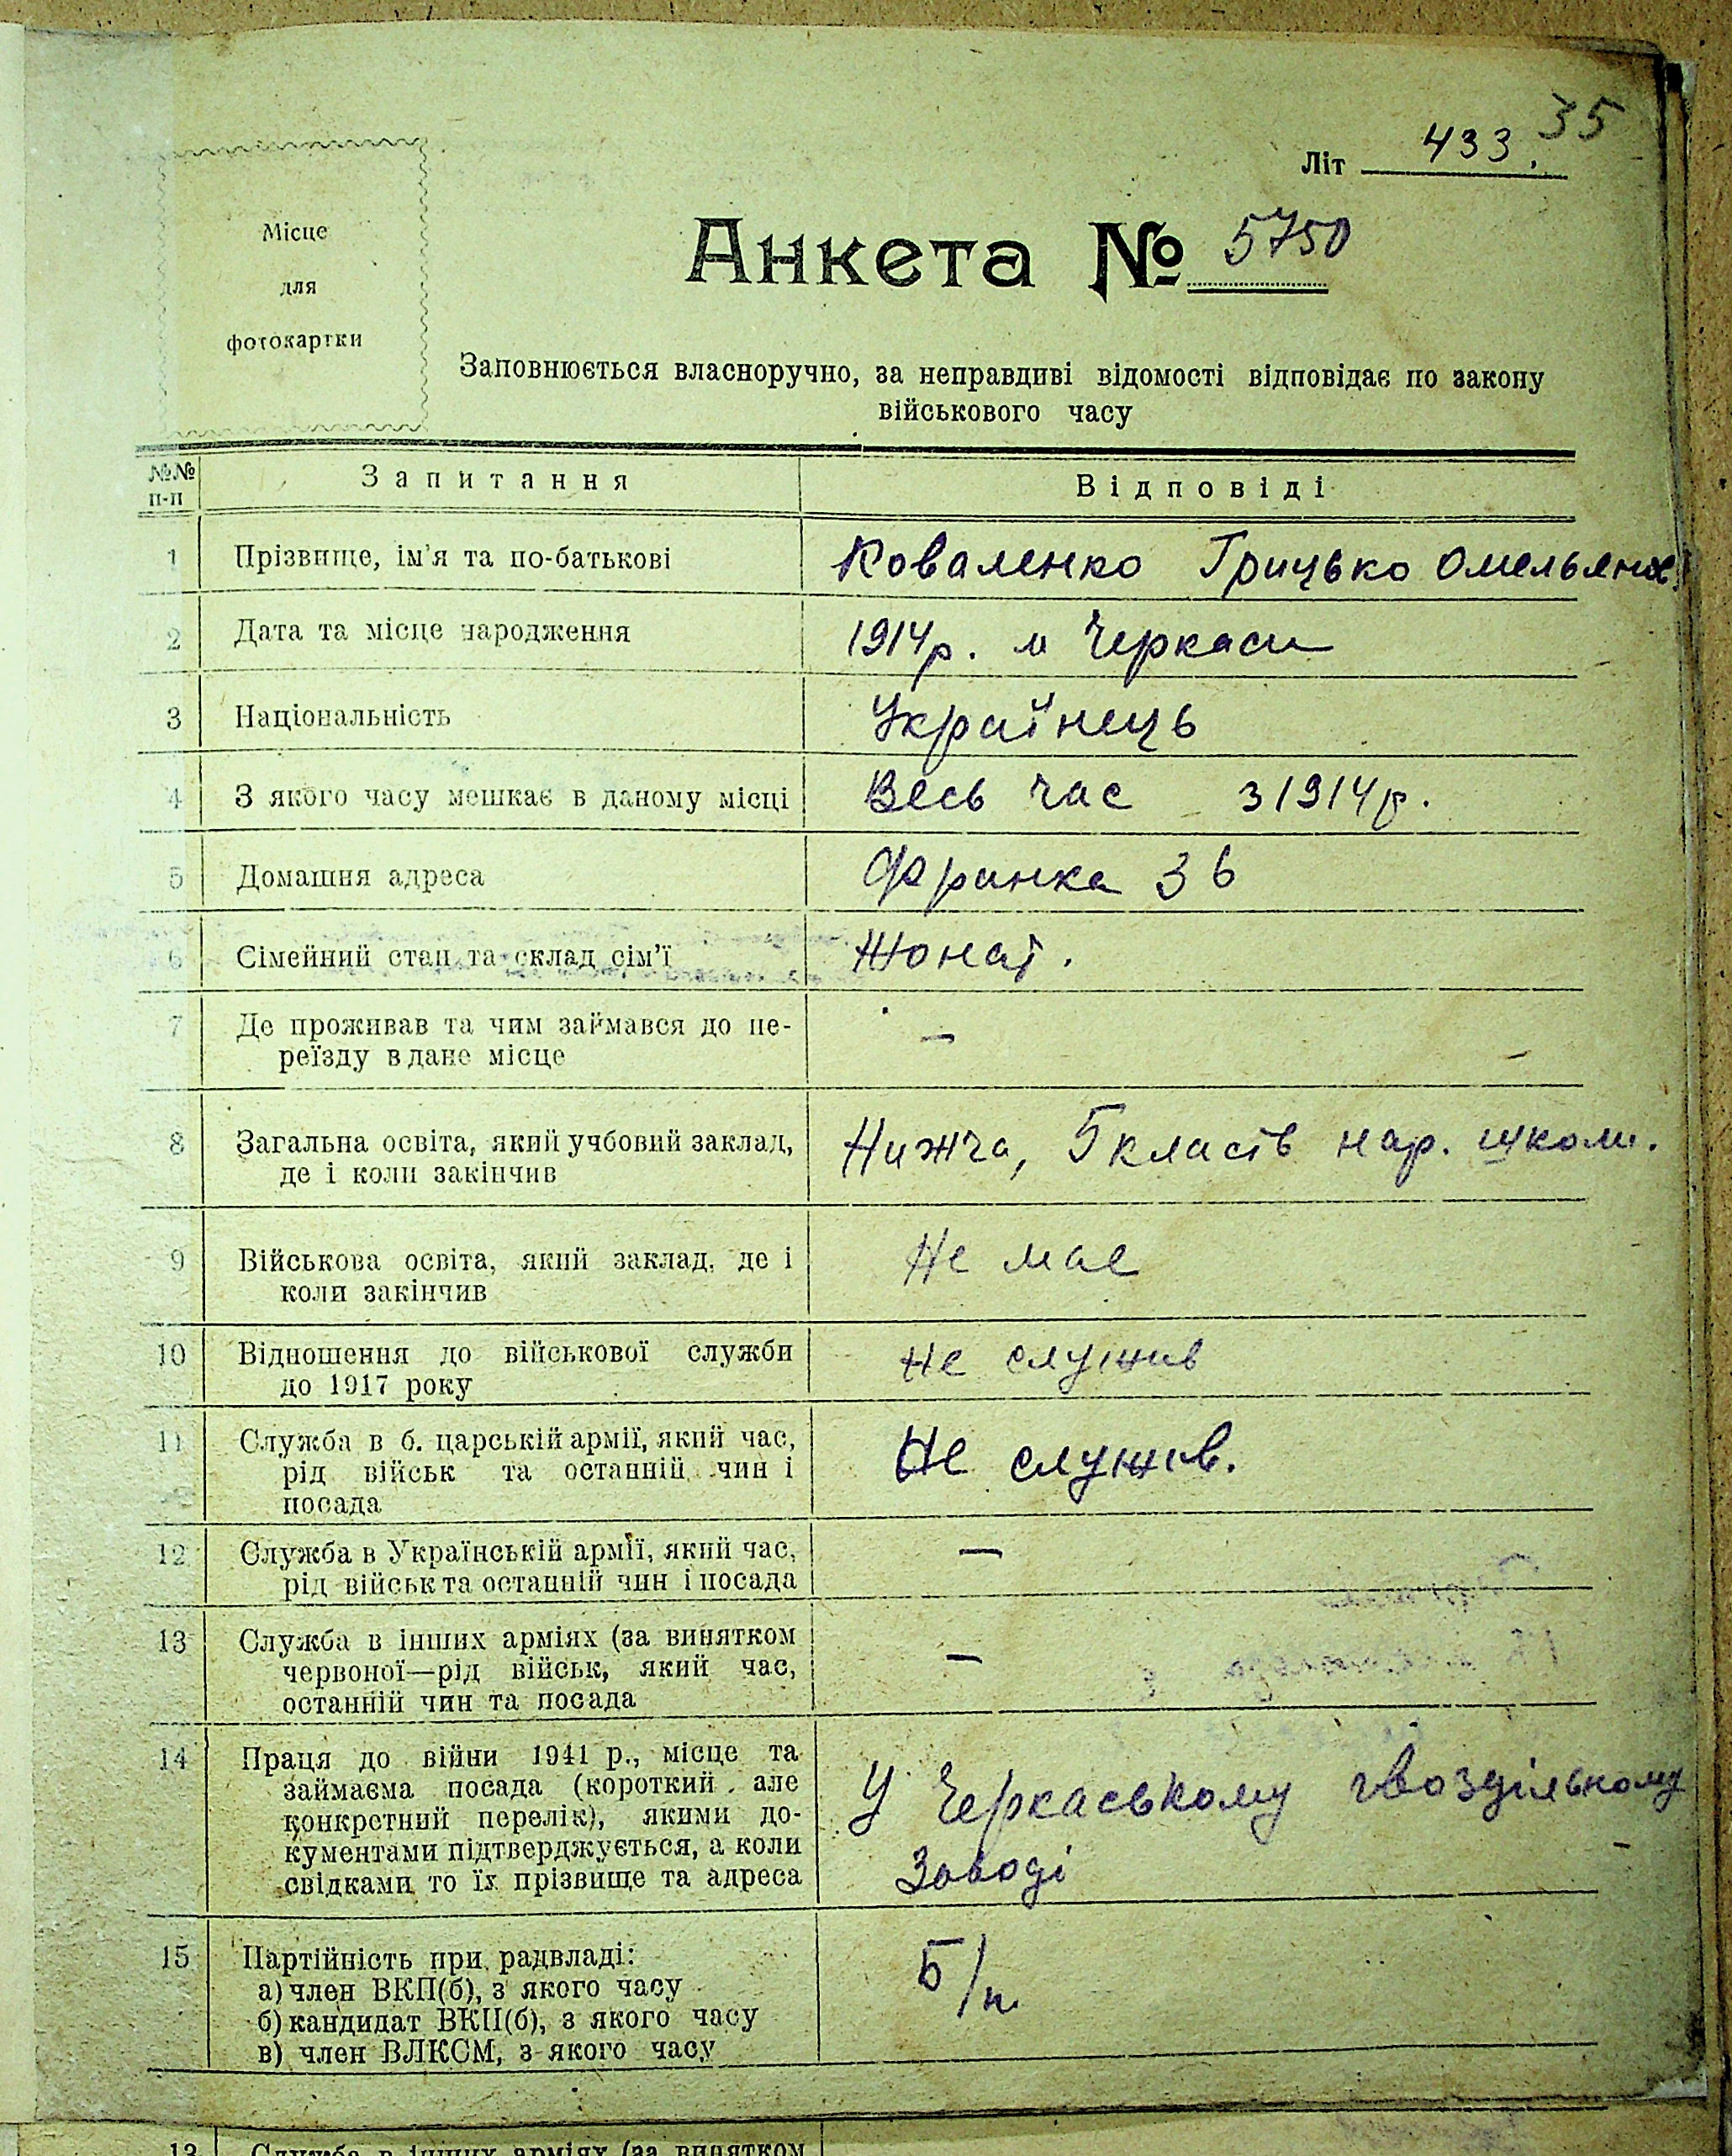 35
Літ 433.
Місце
для
фотокартки
Анкета № 5750
Заповнюється власноручно, за неправдиві відомості відповідає по закону
військового часу
№№ п-п
Запитання
Відповіді
1 Прізвище, ім'я та по-батькові Коваленко Грицько Омельянов.
2 Дата та місце народження 1914р. м Черкаси
3 Національність Українець
4 З якого часу мешкає в даному місці Весь час з 1914р.
5 Домашня адреса Франка 36
6 Сімейний стан та склад сім'ї Жонат.
7 Де проживав та чим займався до пе- —
реїзду в дане місце
8 Загальна освіта, який учбовий заклад, Нижча, 5 класів нар. школи.
де і коли закінчив
9 Військова освіта, який заклад, де і Не має
коли закінчив
10 Відношення до військової служби Не служив
до 1917 року
11 Служба в б. царській армії, який час, Не служив.
рід військ та останній чин і
посада
12 Служба в Українській армії, який час, —
рід військ та останній чин і посада
13 Служба в інших арміях (за винятком —
червоної—рід військ, який час,
останній чин та посада
14 Праця до війни 1941 р., місце та У Черкаському гвоздільному
займаєма посада (короткий але Заводі
конкретний перелік), якими до-
кументами підтверджується, а коли
свідками то їх прізвище та адреса
15 Партійність при радвладі: Б/п.
а) член ВКП(б), з якого часу
б) кандидат ВКП(б), з якого часу
в) член ВЛКСМ, з якого часу
13 Служба в інших арміях (за винятком